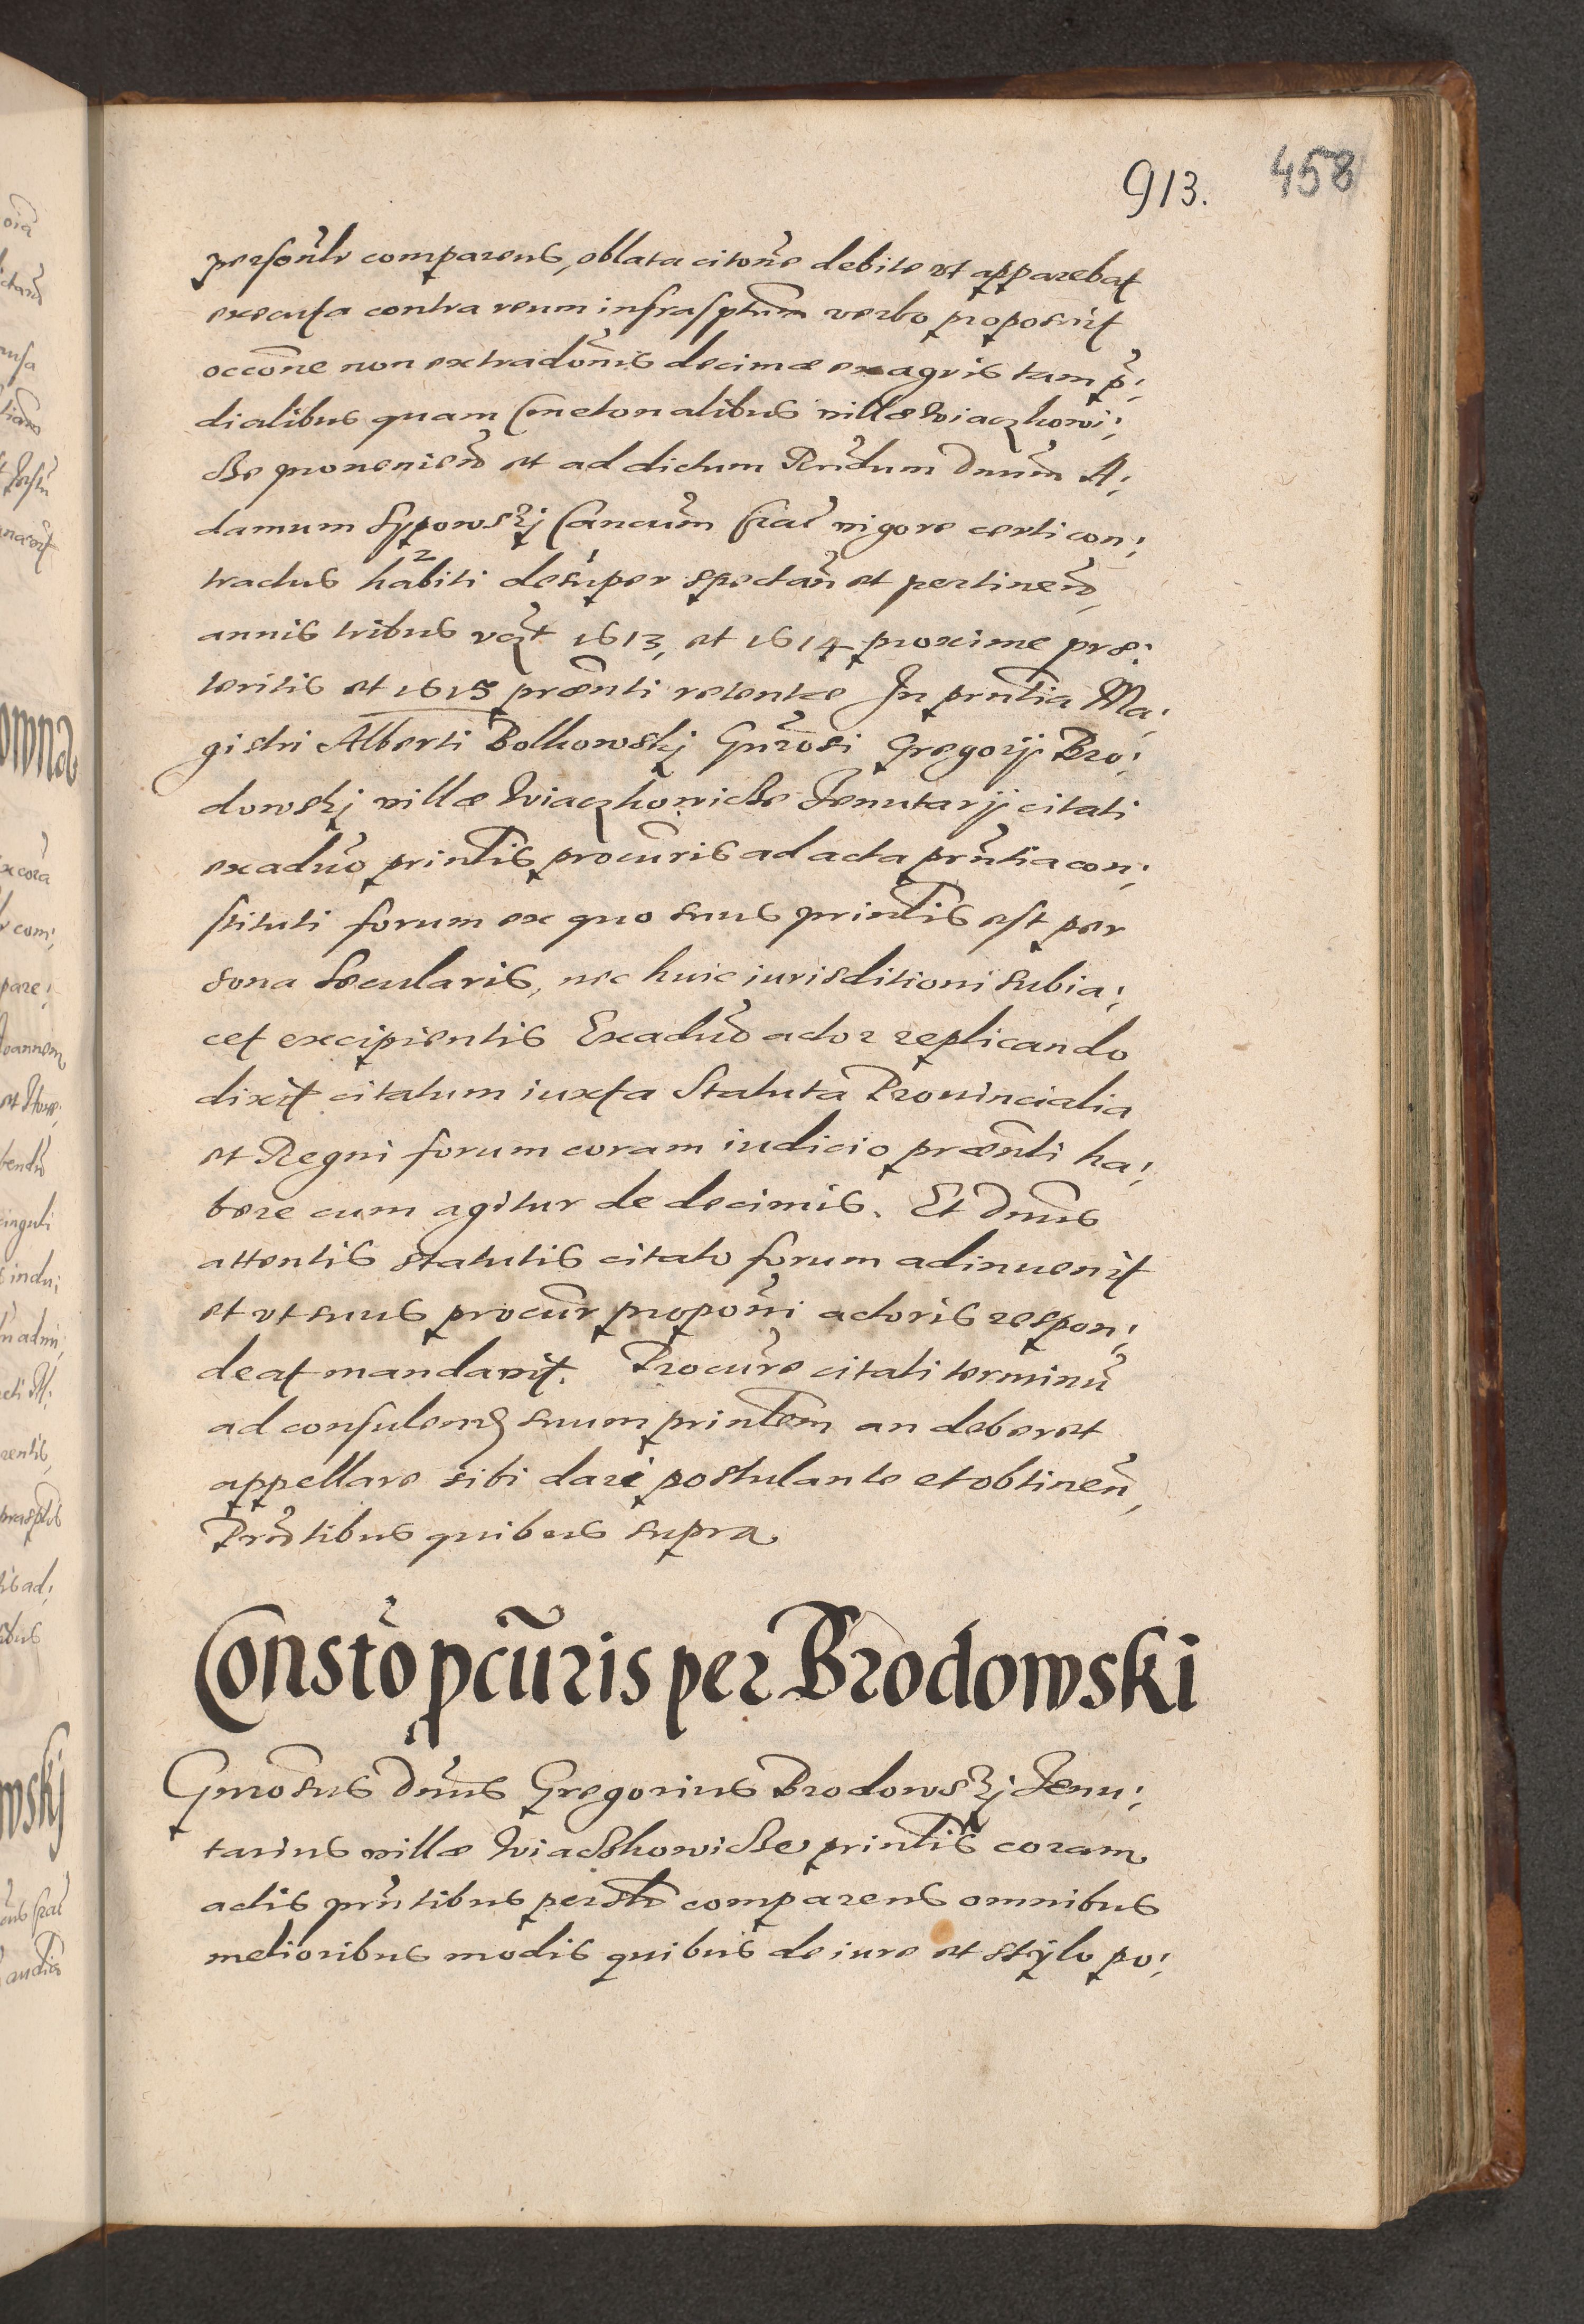 913. 458
personlr comparens, oblata citone debite ut apparebat
executa contra reum infrasptum verbo proposuit
occone non extradonis decimae ex agris tam p;
dialibus quam Cmetonalibus villae Wiaczkowi;
cze provenien et ad dictum Rndum Dnum A;
damum Sypowskj Cancum Crac vigore certi con;
tractus habiti desuper spectan et pertinen,
annis tribus vqt 1613, et 1614 proxime prae;
teritis et 1615 praenti retentae In prntia Ma;
gistri Alberti Bolkowskj Gnrosi Gregorij Bro;
dowskj villae Wiaczkowicze Tenutarij citati
ex aduo printlis procuris ad acta prntia con;
stituti forum ex quo suus printlis est per
sona secularis, nec huic iurisditioni subia;
cet excipientis Ex aduo actor replicando
dixit citatum iuxta Statuta Provincialia
et Regni forum coram iudicio praenti ha;
bere cum agitur de decimis. Et Dnus
attentis statutis citato forum adinvenit
et ut suus procur proponi actoris respon;
deat mandavit. Procure citati terminu
ad consulend suum printlem an deberet
appellare sibi dari postulante et obtinen,
Prntibus quibus supra
Consto pcuris per Brodowski
Gnrosus Dnus Gregorius Brodowskj Tenu;
tarius villae Wiaczkowicze printlis coram
actis prntibus persntr comparens omnibus
melioribus modis quibus de iure et stylo po;